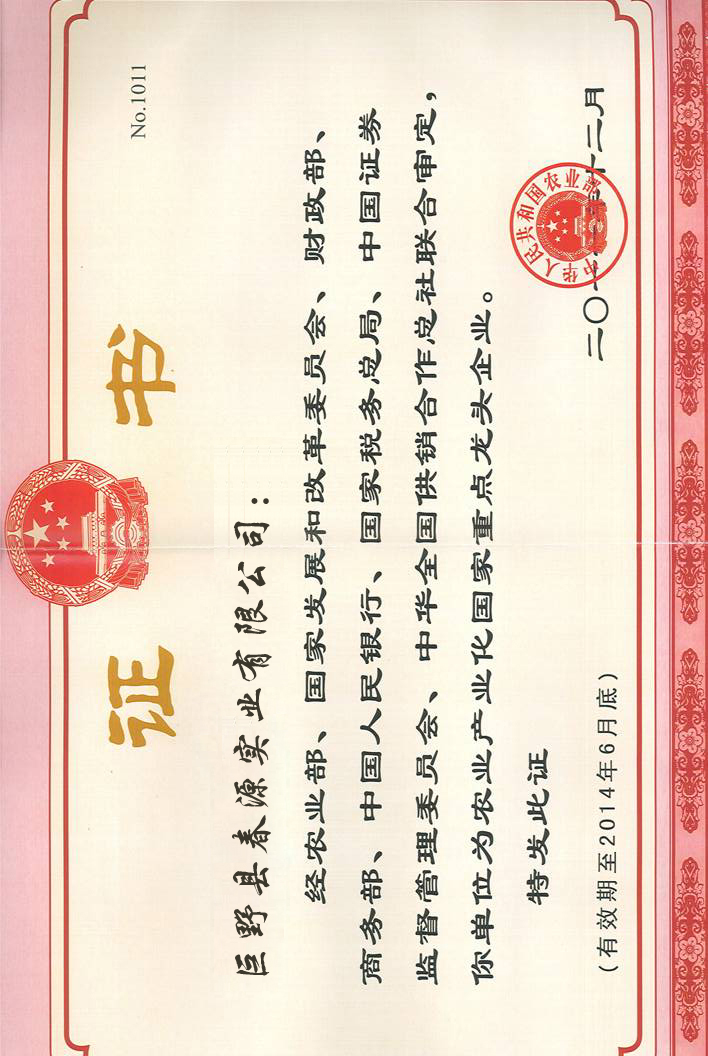 No.1011
证 书
巨野县春源实业有限公司：
经农业部、国家发展和改革委员会、财政部、
商务部、中国人民银行、国家税务总局、中国证券
监督管理委员会、中华全国供销合作总社联合审定，
你单位为农业产业化国家重点龙头企业。
特发此证
中华人民共和国农业部
(有效期至2014年6月底)
二〇一 年十二月